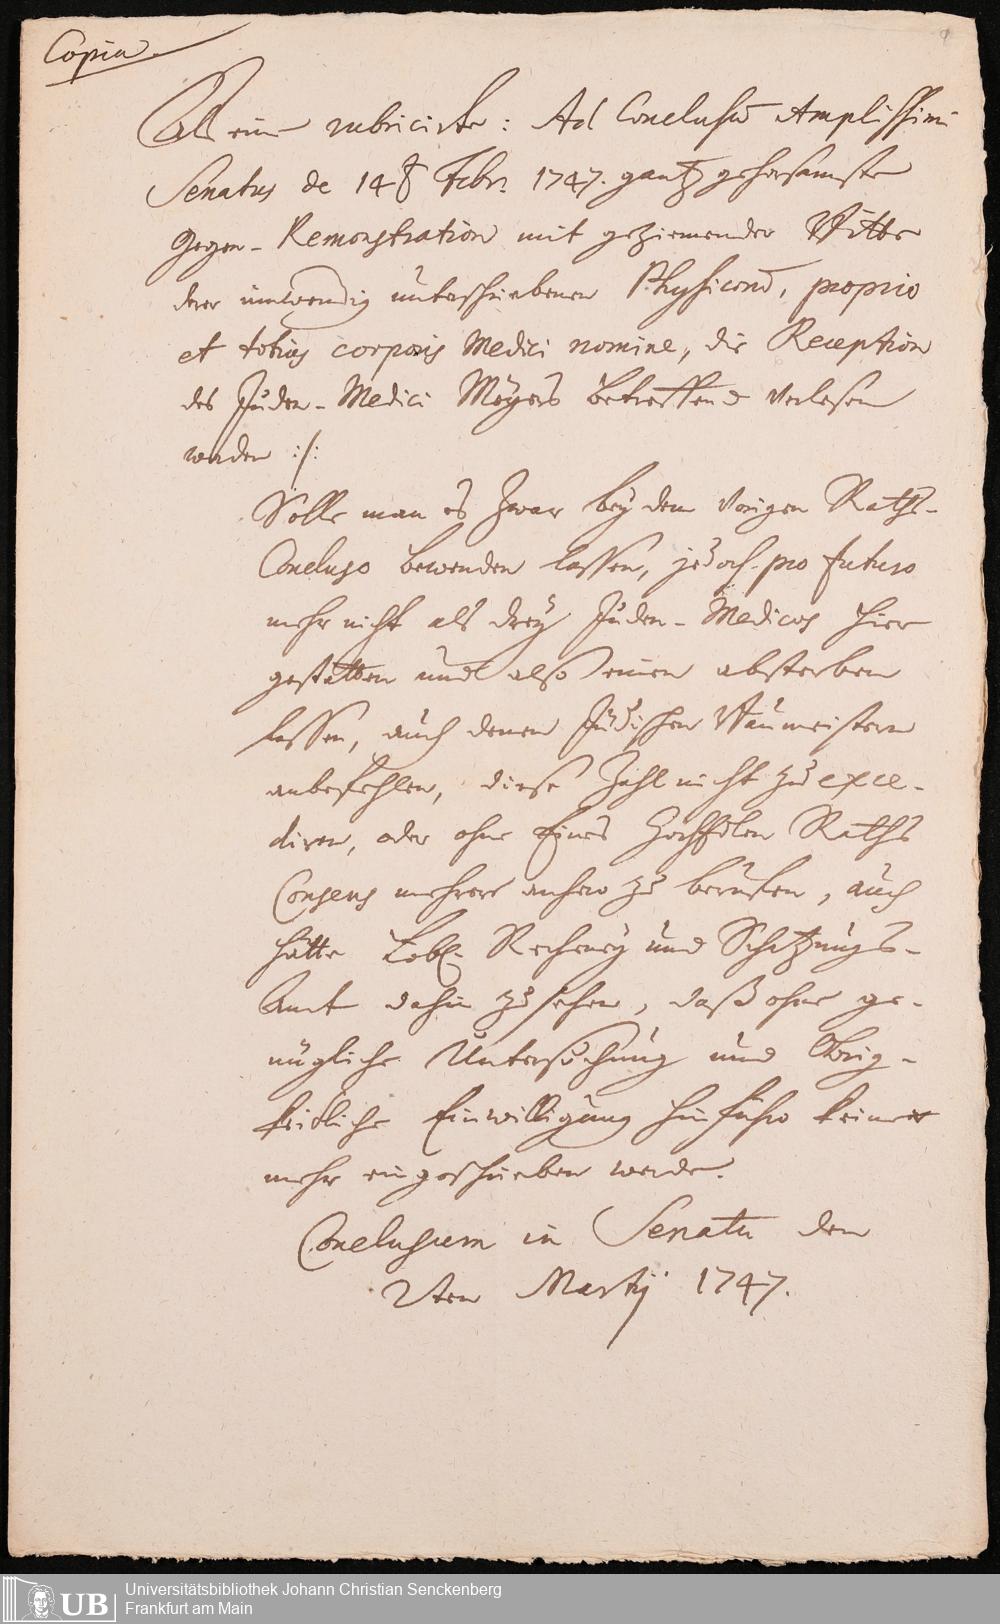 Copia.
Als eine rubricirte: Ad Conclusum Amplissimi
Senatus de 14t Febr. 1747. gantz gehorsamste
Gegen-Remonstration mit geziemender Bitte
derer innwendig unterschriebenen Physicorum, proprio
et totius corporis Medici nomine, die Reception
des Juden-Medici Meyers betreffend verlesen
worden :/:
Solle man es zwar bey dem vorigen Raths-
Concluso bewenden lassen, jedoch pro futuro
mehr nicht als drey Juden-Medicos hier
gestatten und also einen absterben
lassen, auch denen Jüdischen Baumeistern
anbefehlen, diese Zahl nicht zu exce-
diren, oder ohne Eines HochEdlen Raths
Consens mehrere anhero zu beruffen, auch
hätte Löbl. Recheney und Schatzungs-
Amt dahin zu sehen, daß ohne ge-
nügliche Untersuchung und Obrig-
keitliche Einwilligung hinführo keiner
mehr eingeschrieben werde.
Conclusum in Senatu den
2ten Martij 1747.
Universitätsbibliothek Johann Christian Senckenberg
Frankfurt am Main
UB